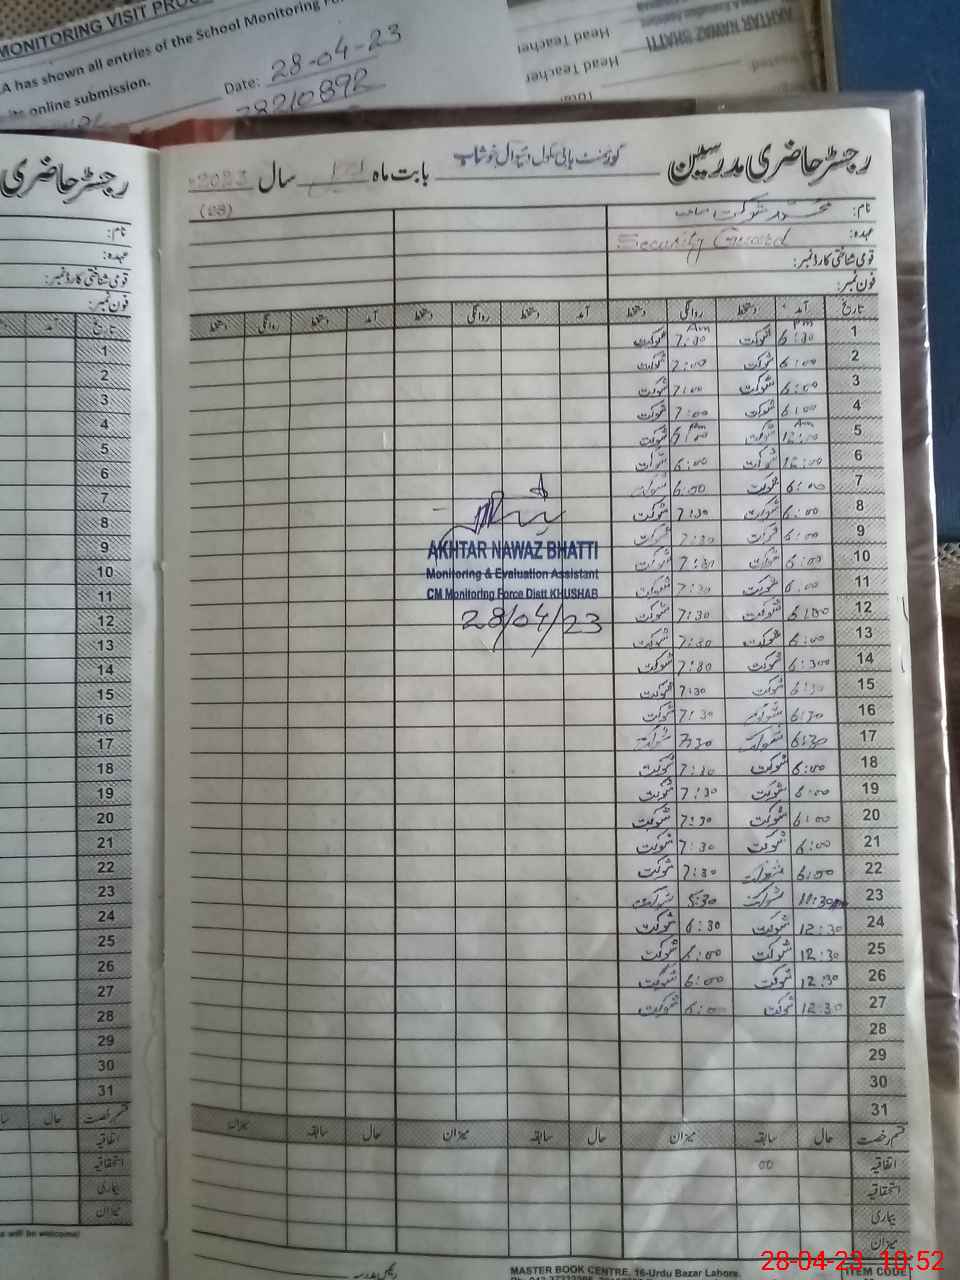 MONITORING VISIT PROC
A has shown all entries of the School Monitoring Fo
its online submission.
Date: 28-04-23
38210892
AKHTAR NAWAZ BHATTI
Head Teacher
Head Teacher
رجسٹر حاضری مدرسین گورنمنٹ ہائی سکول وئیوال خوشاب بابت ماہ سال 2023
(08)
نام: محمد شوکت صاحب
عہدہ: Security Guard
قومی شناختی کارڈ نمبر:
فون نمبر:
تاریخ آمد دستخط روانگی دستخط آمد دستخط روانگی دستخط آمد دستخط روانگی دستخط
1 6:30 Pm شوکت 7:30 Am شوکت
2 6:00 شوکت 7:00 شوکت
3 6:00 شوکت 7:00 شوکت
4 6:00 شوکت 7:00 شوکت
5 12:00 Am شوکت 6:00 Pm شوکت
6 12:00 شوکت 6:00 شوکت
7 6:00 شوکت 6:00 شوکت
8 6:00 شوکت 7:30 شوکت
9 6:00 شوکت 7:30 شوکت
10 6:00 شوکت 7:30 شوکت
11 6:00 شوکت 7:30 شوکت
12 6:00 شوکت 7:30 شوکت
13 6:00 شوکت 7:30 شوکت
14 6:300 شوکت 7:30 شوکت
15 6:30 شوکت 7:30 شوکت
16 6:30 شوکت 7:30 شوکت
17 6:30 شوکت 7:30 شوکت
18 6:00 شوکت 7:30 شوکت
19 6:00 شوکت 7:30 شوکت
20 6:00 شوکت 7:30 شوکت
21 6:00 شوکت 7:30 شوکت
22 6:00 شوکت 7:30 شوکت
23 11:30 شوکت 5:30 شوکت
24 12:30 شوکت 6:30 شوکت
25 12:30 شوکت 6:00 شوکت
26 12:30 شوکت 6:00 شوکت
27 12:30 شوکت 6:00 شوکت
28
29
30
31
AKHTAR NAWAZ BHATTI
Monitoring & Evaluation Assistant
CM Monitoring Force Distt KHUSHAB
28/04/23
قسم رخصت حال سابقہ میزان حال سابقہ میزان حال سابقہ میزان
اتفاقیہ 00
استحقاقیہ
بیماری
میزان
MASTER BOOK CENTRE, 16-Urdu Bazar Lahore.
ITEM CODE
رجسٹر حاضری
نام:
عہدہ:
قومی شناختی کارڈ نمبر:
فون نمبر:
تاریخ آمد
1
2
3
4
5
6
7
8
9
10
11
12
13
14
15
16
17
18
19
20
21
22
23
24
25
26
27
28
29
30
31
قسم رخصت حال
اتفاقیہ
استحقاقیہ
بیماری
میزان
s will be welcome!
28-04-23 10:52